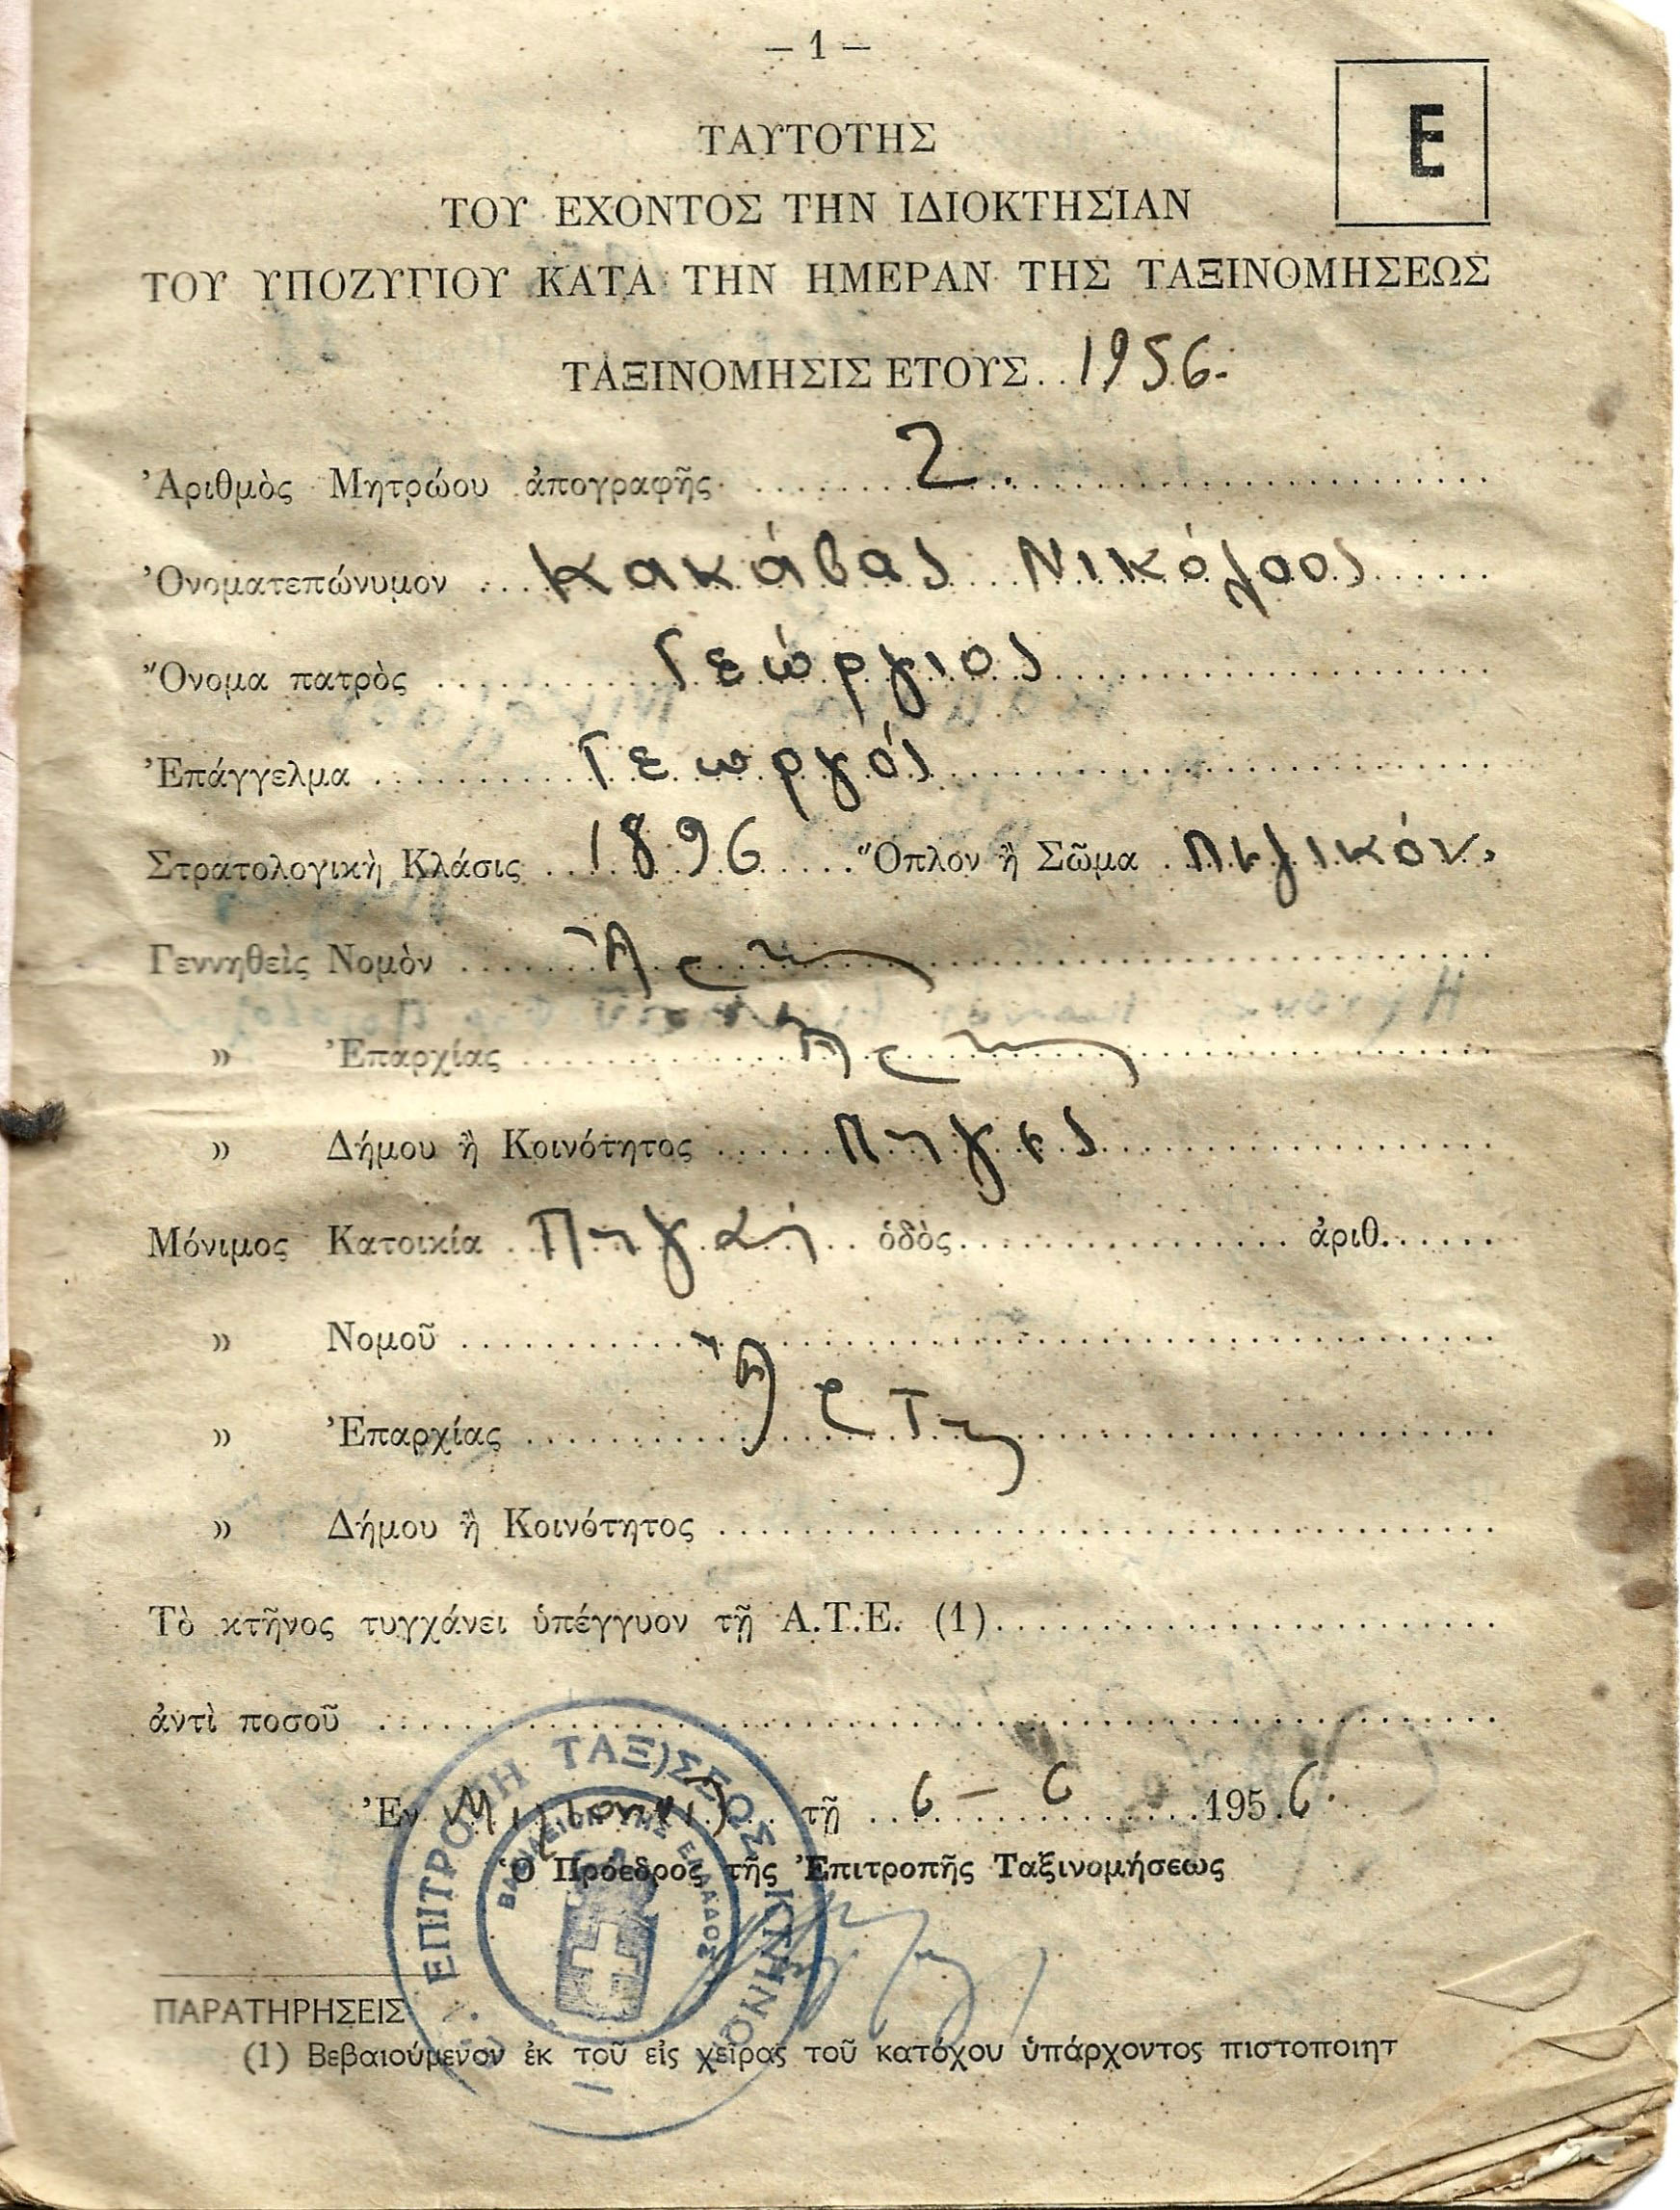 — 1 —
E
ΤΑΥΤΟΤΗΣ
ΤΟΥ ΕΧΟΝΤΟΣ ΤΗΝ ΙΔΙΟΚΤΗΣΙΑΝ
ΤΟΥ ΥΠΟΖΥΓΙΟΥ ΚΑΤΑ ΤΗΝ ΗΜΕΡΑΝ ΤΗΣ ΤΑΞΙΝΟΜΗΣΕΩΣ
ΤΑΞΙΝΟΜΗΣΙΣ ΕΤΟΥΣ..1956.
Ἀριθμὸς Μητρώου ἀπογραφῆς 2.
Ὀνοματεπώνυμον Κακάβας Νικόλαος
Ὄνομα πατρὸς Γεώργιος
Ἐπάγγελμα Γεωργός
Στρατολογικὴ Κλάσις 1896 Ὅπλον ἢ Σῶμα Πεζικόν.
Γεννηθεὶς Νομὸν Ἄρτης
» Ἐπαρχίας Ἄρτης
» Δήμου ἢ Κοινότητος Πηγές
Μόνιμος Κατοικία Πηγαί ὁδὸς ἀριθ.
» Νομοῦ
» Ἐπαρχίας Ἄρτης
» Δήμου ἢ Κοινότητος
Τὸ κτῆνος τυγχάνει ὑπέγγυον τῇ Α.Τ.Ε. (1)
ἀντὶ ποσοῦ
Ἐν τῇ 6 - 6 1956.
Ὁ Πρόεδρος τῆς Ἐπιτροπῆς Ταξινομήσεως
ΕΠΙΤΡΟΠΗ ΤΑΞ)ΣΕΩΣ ΚΤΗΝΩΝ
ΒΑΣΙΛΕΙΟΝ ΤΗΣ ΕΛΛΑΔΟΣ
ΠΑΡΑΤΗΡΗΣΕΙΣ
(1) Βεβαιούμενον ἐκ τοῦ εἰς χεῖρας τοῦ κατόχου ὑπάρχοντος πιστοποιητ